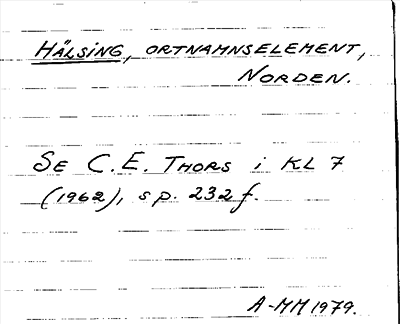 HÄLSING, ORTNAMNSELEMENT,
NORDEN.
SE C. E. THORS i KL 7
(1962), sp. 232 f.
A-MM 1979.